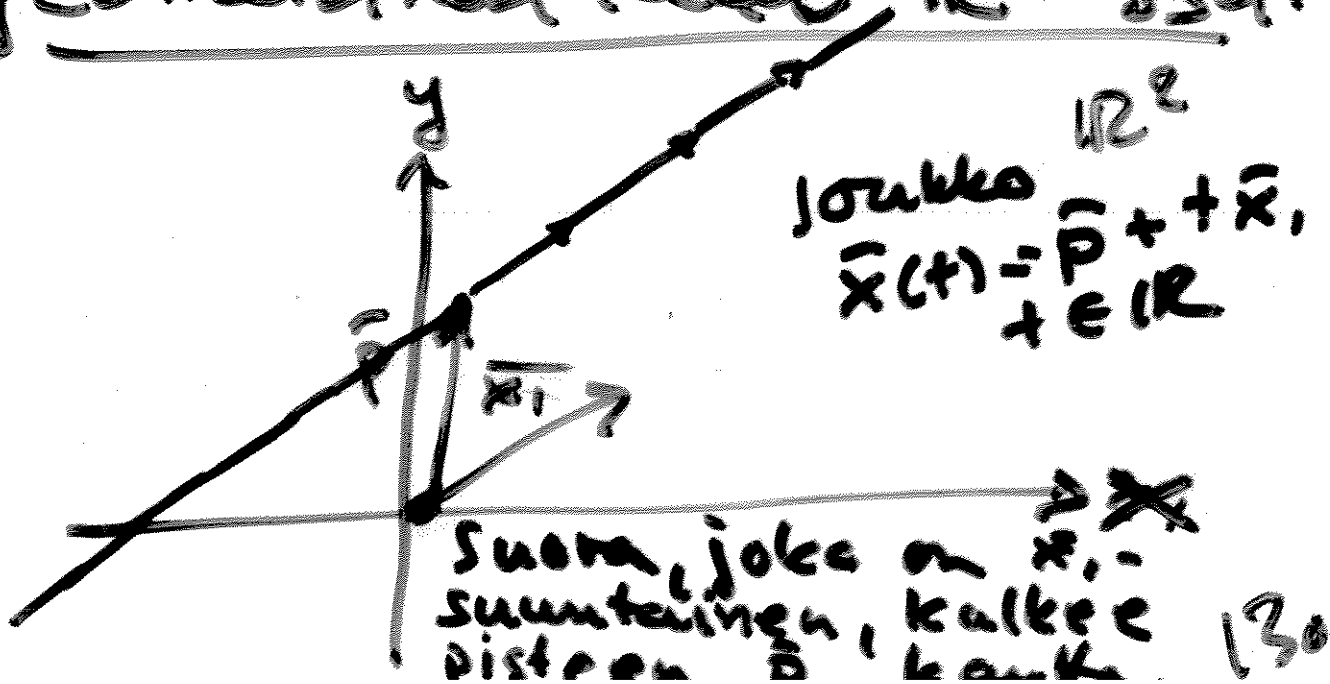 y
ℝ²
Joukko
x̄(t) = p̄ + t x̄₁
t ∈ ℝ
p̄
x̄₁
x
Suora, joka on x̄₁-
suuntainen, kulkee
pisteen p̄ kautta
130